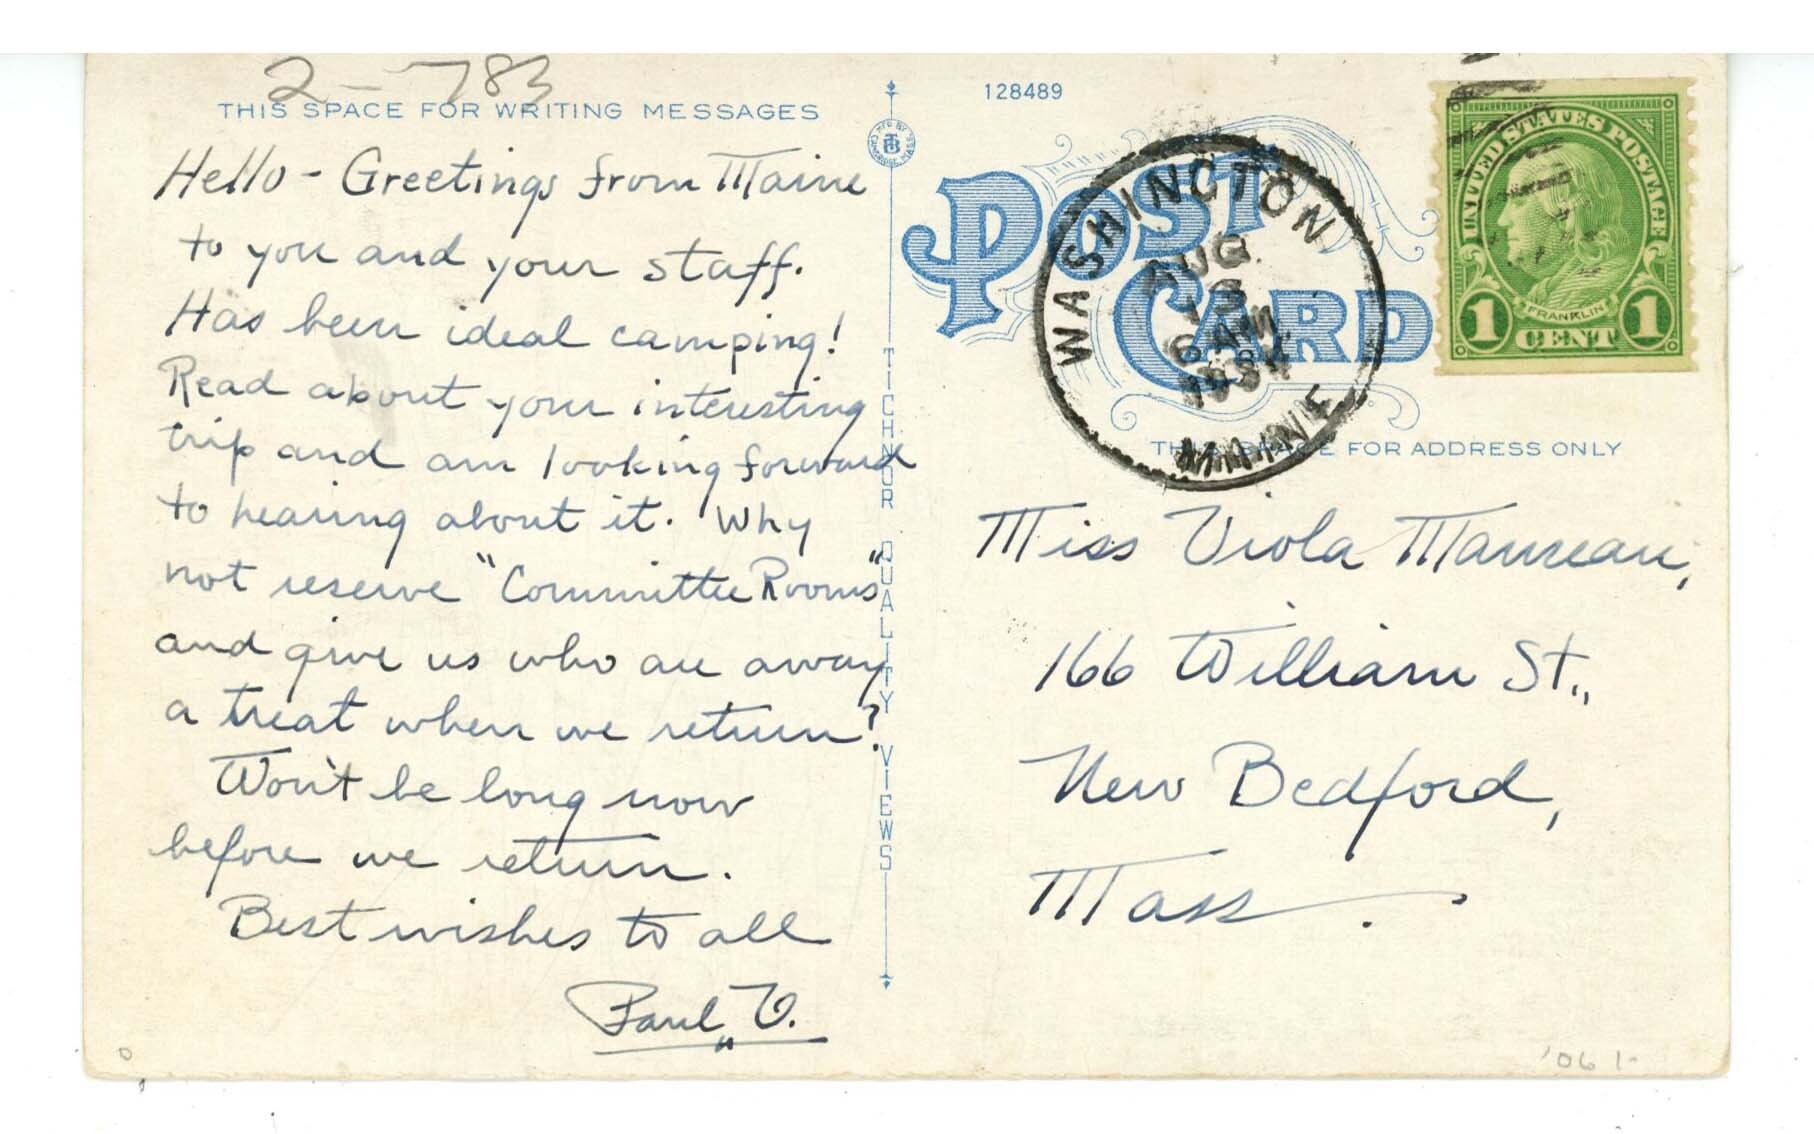 2-783
THIS SPACE FOR WRITING MESSAGES
Hello - Greetings from Maine
to you and your staff.
Has been ideal camping!
Read about your interesting
trip and am looking forward
to hearing about it. Why
not reserve "Committee Rooms"
and give us who are away
a treat when we return?
Won't be long now
before we return.
Best wishes to all
Paul V.
TICHNOR QUALITY VIEWS
MFG BY
TB
CAMBRIDGE, MASS
128489
POST
CARD
WASHINGTON
AUG
6 AM
1934
MAINE
UNITED STATES POSTAGE
FRANKLIN
1 CENT 1
THIS SPACE FOR ADDRESS ONLY
Miss Viola
166 William St.,
New Bedford,
Mass.